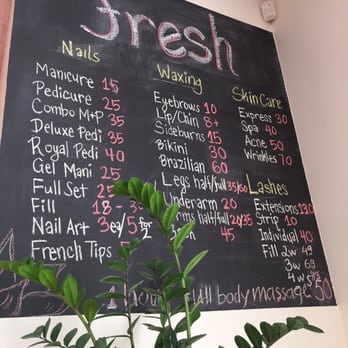 fresh
Nails
Manicure 15
Pedicure 25
Combo M+P 35
Deluxe Pedi 35
Royal Pedi 40
Gel Mani 25
Full Set 25
Fill 18 -
Nail Art 3ea/5 for 2
French Tips 5
Waxing
Eyebrows 10
Lip/Chin 8+
Sideburns 15
Bikini 30
Brazilian 60
Legs half/full 35/60
Underarm 20
Arms half/full 20/35
45
Skin Care
Express 30
Spa 40
Acne 50
Wrinkles 70
Lashes
Extensions 130
Strip 10
Individual 40
Fill 2w 49
3w 69
4w
full body massage 50